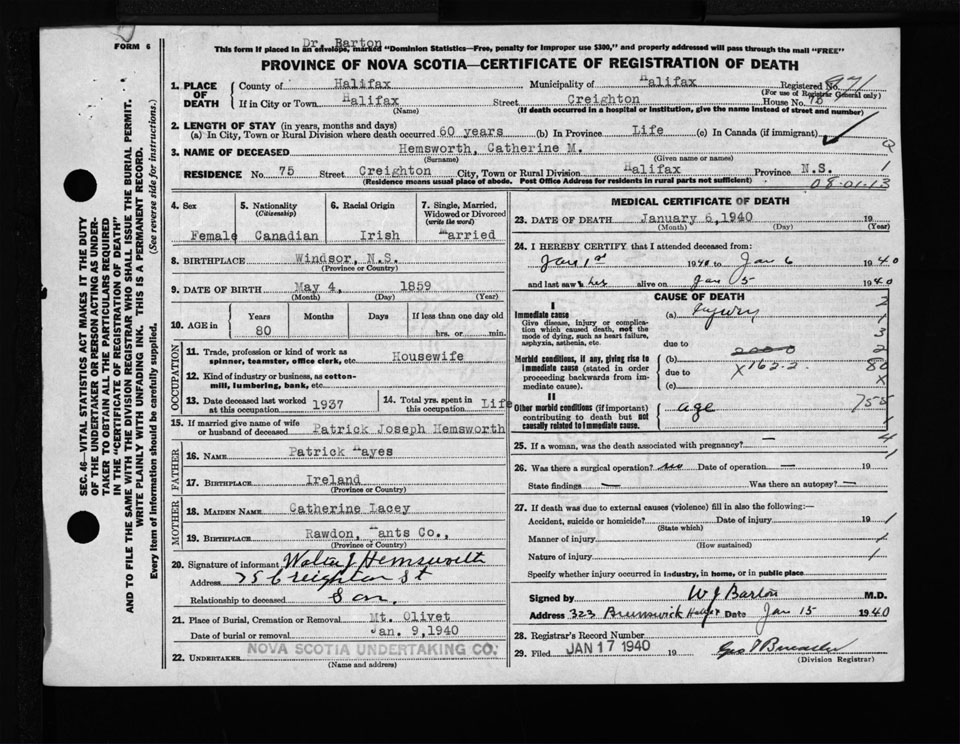 FORM 6
Dr. Barton
This form if placed in an envelope, marked "Dominion Statistics—Free, penalty for improper use $300," and properly addressed will pass through the mail "FREE"
PROVINCE OF NOVA SCOTIA—CERTIFICATE OF REGISTRATION OF DEATH
1. PLACE OF DEATH
County of Halifax Municipality of Halifax Registered No. 871
(For use of Registrar General only)
If in City or Town Halifax Street Creighton House No. 75
(Name) (If death occurred in a hospital or institution, give the name instead of street and number)
2. LENGTH OF STAY (in years, months and days)
(a) In City, Town or Rural Division where death occurred 60 years (b) In Province Life (c) In Canada (if immigrant)
3. NAME OF DECEASED Hemsworth, Catherine M.
(Surname) (Given name or names)
RESIDENCE No. 75 Street Creighton City, Town or Rural Division Halifax Province N.S.
(Residence means usual place of abode. Post Office Address for residents in rural parts not sufficient)
08-01-13
4. Sex Female
5. Nationality (Citizenship) Canadian
6. Racial Origin Irish
7. Single, Married, Widowed or Divorced (write the word) Married
8. BIRTHPLACE Windsor, N.S.
(Province or Country)
9. DATE OF BIRTH May 4, 1859
(Month) (Day) (Year)
10. AGE in Years Months Days If less than one day old
80 hrs. or min.
OCCUPATION
11. Trade, profession or kind of work as spinner, teamster, office clerk, etc. Housewife
12. Kind of industry or business, as cotton-mill, lumbering, bank, etc.
13. Date deceased last worked at this occupation 1937
14. Total yrs. spent in this occupation Life
15. If married give name of wife or husband of deceased Patrick Joseph Hemsworth
FATHER
16. Name Patrick Hayes
17. Birthplace Ireland
(Province or Country)
MOTHER
18. Maiden Name Catherine Lacey
19. Birthplace Rawdon, Hants Co.,
(Province or Country)
20. Signature of informant Walter J Hemsworth
Address 75 Creighton St
Relationship to deceased Son.
21. Place of Burial, Cremation or Removal Mt. Olivet
Date of burial or removal Jan. 9, 1940
22. UNDERTAKER NOVA SCOTIA UNDERTAKING CO.
(Name and address)
MEDICAL CERTIFICATE OF DEATH
23. DATE OF DEATH January 6, 1940 19
(Month) (Day) (Year)
24. I HEREBY CERTIFY that I attended deceased from:
Jan 1st 1940 to Jan 6 1940
and last saw her alive on Jan 5 1940
CAUSE OF DEATH
I
Immediate cause (a)
Give disease, injury or complication which caused death, not the mode of dying, such as heart failure, asphyxia, asthenia, etc.
due to
Morbid conditions, if any, giving rise to immediate cause (stated in order proceeding backwards from immediate cause).
(b)
due to X162.2
(c)
II
Other morbid conditions (if important) contributing to death but not causally related to immediate cause. age
25. If a woman, was the death associated with pregnancy? —
26. Was there a surgical operation? no Date of operation — 19
State findings — Was there an autopsy? —
27. If death was due to external causes (violence) fill in also the following:—
Accident, suicide or homicide? Date of injury 19
(State which)
Manner of injury
(How sustained)
Nature of injury
Specify whether injury occurred in industry, in home, or in public place
Signed by W J Barton M.D.
Address 323 Brunswick Date Jan 15 1940
28. Registrar's Record Number
29. Filed JAN 17 1940 19
(Division Registrar)
SEC. 46—VITAL STATISTICS ACT MAKES IT THE DUTY
OF THE UNDERTAKER OR PERSON ACTING AS UNDER-
TAKER TO OBTAIN ALL THE PARTICULARS REQUIRED
IN THE "CERTIFICATE OF REGISTRATION OF DEATH"
AND TO FILE THE SAME WITH THE DIVISION REGISTRAR WHO SHALL ISSUE THE BURIAL PERMIT.
WRITE PLAINLY WITH UNFADING INK. THIS IS A PERMANENT RECORD.
Every item of information should be carefully supplied. (See reverse side for instructions.)